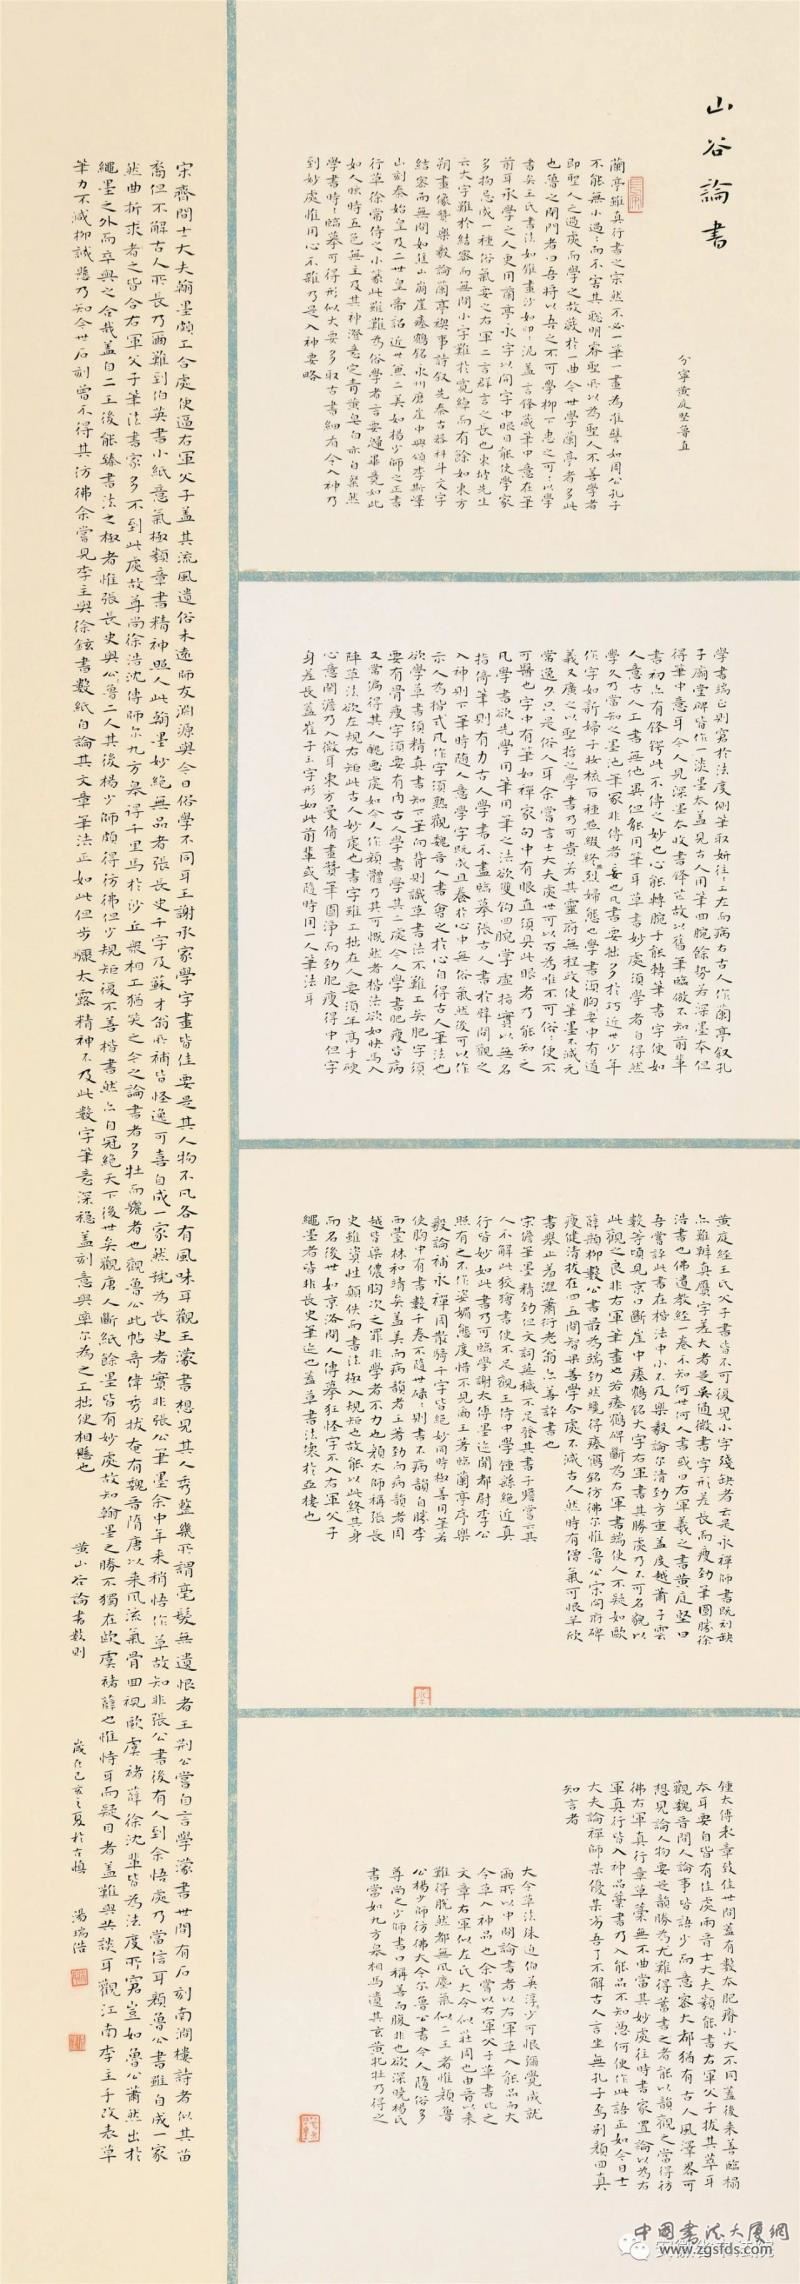 山谷論書
分寧黃庭堅魯直
蘭亭雖真行書之宗然不必一筆一畫為準譬如周公孔子
不能無小過過而不害其聰明睿聖所以為聖人不善學者
即聖人之過處而學之故蔽於一曲今世學蘭亭者多此
也魯之閉門者曰吾將以吾之不可學柳下惠之可可以學
書矣王氏書法如錐畫沙如印印泥蓋言鋒藏筆中意在筆
前耳承學之人更用蘭亭永字以開字中眼目能使學家
多拘忌成一種俗氣要之右軍二言群言之長也東坡先生
云大字難於結密而無間小字難於寬綽而有餘如東方
朔畫像贊樂毅論蘭亭禊事詩敘先秦古器科斗文字
結密而無間如焦山崩崖瘞鶴銘永州磨崖中興頌李斯嶧
山刻秦始皇及二世皇帝詔近世無二美如楊少師之正書
行草徐常侍之小篆此雖難為俗學者言要歸畢竟如此
如人眩時五色無主及其神澄意定青黃皂白亦自粲然
學書時時臨摹可得形似大要多取古書細看令入神乃
到妙處惟用心不雜乃是入神要路
學書端正則窘於法度側筆取妍往往工左而病右古人作蘭亭敘孔
子廟堂碑皆作一淡墨本蓋見古人用筆回腕餘勢若深墨本但
得筆中意耳今人見深墨本收書鋒芒故以舊筆臨倣不知前輩
書初亦有鋒鍔此不傳之妙也心能轉腕手能轉筆書字便如
人意古人工書無他異但能用筆耳草書妙處須學者自得然
學久乃當知之墨池筆冢非傳者妄也凡書要拙多於巧近世少年
作字如新婦子妝梳百種點綴終無烈婦態也學書須胸中有道
義又廣之以聖哲之學書乃可貴若其靈府無程政使筆墨不減元
常逸少只是俗人耳余嘗言士大夫處世可以百為唯不可俗俗便不
可醫也字中有筆如禪家句中有眼直須具此眼者乃能知之
凡學書欲先學用筆用筆之法欲雙鉤回腕掌虛指實以無名
指倚筆則有力古人學書不盡臨摹張古人書於壁間觀之
入神則下筆時隨人意學字既成且養於心中無俗氣然後可以作
示人為楷式凡作字須熟觀魏晉人書會之於心自得古人筆法也
欲學草書須精真書知下筆向背則識草書法不難工矣肥字須
要有骨瘦字須要有肉古人學書學其二處今人學書肥瘦皆病
又常偏得其人醜惡處如今人作顏體乃其可慨然者楷法欲如快馬入
陣草法欲左規右矩此古人妙處也書字雖工拙在人要須年高手硬
心意閑澹乃入微耳東方曼倩畫贊筆圓淨而勁肥瘦得中但字
身差長蓋崔子玉字形如此前輩或隨時用一人筆法耳
黃庭經王氏父子書皆不可復見小字殘缺者云是永禪師書既刓缺
亦難辨真贗字差大者是吳通微書字形差長而瘦勁筆圓勝徐
浩書也佛遺教經一卷不知何世何人書或曰右軍羲之書黃庭堅曰
吾嘗評此書在楷法中小不及樂毅論爾清勁方重蓋度越蕭子雲
數等頃見京口斷崖中瘞鶴銘大字右軍書其勝處乃不可名貌以
此觀之良非右軍筆畫也若瘞鶴碑斷為右軍書端使人不疑如歐
薛顏柳數公書最為端勁然纔得瘞鶴銘彷彿爾惟魯公宋開府碑
瘦健清拔在四五間智果善學合處不減古人然時有僧氣可恨羊欣
書舉止羞澀蕭衍老翁亦善評書也
宋儋筆墨精勁但文詞蕪穢不足發其書子瞻嘗云其
人不解此狡獪書便不足觀王侍中學鍾繇絕近真
行皆妙如此書乃可臨學謝太傅墨迹聞都尉李公
照有之不作姿媚態度惜不見爾王著臨蘭亭序樂
毅論補永禪周散騎千字皆絕妙同時極善用筆若
使胸中有書數千卷不隨世碌碌則書不病韻自勝李
西臺林和靖矣蓋美而病韻者王著勁而病韻者周
越皆渠儂胸次之罪非學者不力也顏太師稱張長
史雖資性顛佚而書法極入規矩也故能以此終其身
而名後世如京洛間人傳摹狂怪字不入右軍父子
繩墨者皆非長史筆迹也蓋草書法壞於亞棲也
鍾太傅表章致佳世間蓋有數本肥瘠小大不同蓋後來善臨搨
本耳要自皆有佳處兩晉士大夫類能書右軍父子拔其萃耳
觀魏晉間人論事皆語少而意密大都猶有古人風澤略可
想見論人物要是韻勝為尤難得蓄書之者能以韻觀之當得彷
彿右軍真行章草藁無不曲當其妙處往時書家置論以為右
軍真行皆入神品藁書乃入能品不知憑何便作此語正如今日士
大夫論禪師某優某劣吾了不解古人言坐無孔子焉別顏回真
知言者
大令草法殊迫伯英淳少可恨彌覺成就
爾所以中間論書者以右軍草入能品而大
令草入神品也余嘗以右軍父子草書比之
文章右軍似左氏大令似莊周也由晉以來
難得脫然都無風塵氣似二王者惟顏魯
公楊少師彷彿大令爾魯公書今人隨俗多
尊尚之少師書口稱善而腹非也欲深曉楊氏
書當如九方皋相馬遺其玄黃牝牡乃得之
宋齊間士大夫翰墨頗工合處便逼右軍父子蓋其流風遺俗未遠師友淵源與今日俗學不同耳王謝承家學字畫皆佳要是其人物不凡各有風味耳觀王濛書想見其人秀整幾所謂毫髮無遺恨者王荊公嘗自言學濛書世間有石刻南澗樓詩者似其苗
裔但不解古人所長乃爾難到伯英書小紙意氣極類章書精神照人此翰墨妙絕無品者張長史千字及蘇才翁所補皆怪逸可喜自成一家然號為長史者實非張公筆墨余中年來稍悟作草故知非張公書後有人到余悟處乃當信耳顏魯公書雖自成一家
然曲折求者之皆合右軍父子筆法書家多不到此處故尊尚徐浩沈傳師爾九方皋得千里馬於沙丘眾相工猶笑之今之論書者多牡而驪者也觀魯公此帖奇偉秀拔奄有魏晉隋唐以來風流氣骨回視歐虞褚薛徐沈輩皆為法度所窘豈如魯公蕭然出於
繩墨之外而卒與之合哉蓋自二王後能臻書法之極者惟張長史與公魯二人其後楊少師頗得彷彿但少規矩復不善楷書然亦自冠絕天下後世矣觀唐人斷紙餘墨皆有妙處故知翰墨之勝不獨在歐虞褚薛也惟恃耳而疑目者蓋難與共談耳觀江南李主手改表草
筆力不減柳誠懸乃知今世石刻曾不得其彷彿余嘗見李主與徐鉉書數紙自論其文章筆法正如此但步驟太露精神不及此數字筆意深穩蓋刻意與率爾為之工拙便相懸也
黃山谷論書數則
歲在己亥之夏於古慎
湯瑞浩
中國書法大廈網
www.zgsfds.com